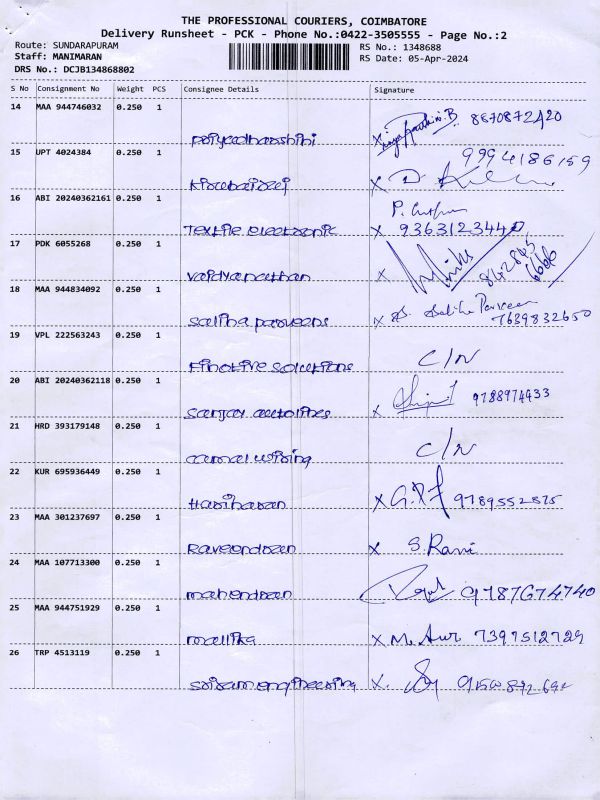 THE PROFESSIONAL COURIERS, COIMBATORE
Delivery Runsheet - PCK - Phone No.:0422-3505555 - Page No.:2
Route: SUNDARAPURAM RS No.: 1348688
Staff: MANIMARAN RS Date: 05-Apr-2024
DRS No.: DCJB134868802
S No Consignment No Weight PCS Consignee Details Signature
14 MAA 944746032 0.250 1
priyadharshini X 8870872420
15 UPT 4024384 0.250 1 9994186159
X
16 ABI 20240362161 0.250 1
Textile electronic X 9363123440
17 PDK 6055268 0.250 1
vaidyanathan X 842845 6666
18 MAA 944834092 0.250 1
saliha parveens X 7639832650
19 VPL 222563243 0.250 1 C/N
solutions
20 ABI 20240362118 0.250 1
sanjay X 9788974933
21 HRD 393179148 0.250 1 C/N
22 KUR 695936449 0.250 1
Hariharan X 9789552875
23 MAA 301237697 0.250 1
Raveendran X S. Rani
24 MAA 107713300 0.250 1
mahendran 9787674740
25 MAA 944751929 0.250 1
mallika X 7397512729
26 TRP 4513119 0.250 1
sriram engineering X.